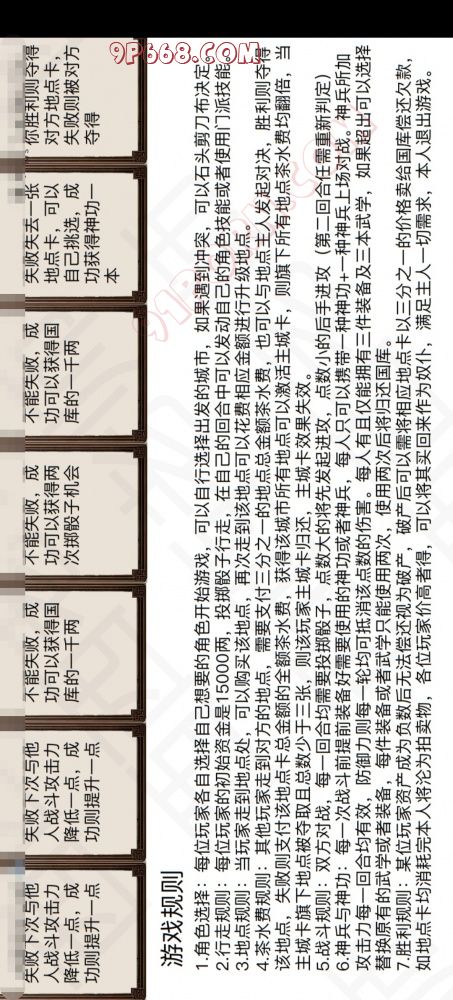 失败下次与他
人战斗攻击力
降低一点，成
功则提升一点
失败下次与他
人战斗攻击力
降低一点，成
功则提升一点
不能失败，成
功可以获得国
库的一千两
不能失败，成
功可以获得两
次掷骰子机会
不能失败，成
功可以获得国
库的一千两
失败失去一张
地点卡，可以
自己挑选，成
功获得神功一
本
你胜利则夺得
对方地点卡，
失败则被对方
夺得
游戏规则
1.角色选择：每位玩家各自选择自己想要的角色开始游戏，可以自行选择出发的城市，如果遇到冲突，可以石头剪刀布决定。
2.行走规则：每位玩家的初始资金是15000两，投掷骰子行走，在自己的回合中可以发动自己的角色技能或者使用门派技能。
3.地点规则：当玩家走到地点处，可以购买该地点，再次走到该地点可以花费相应金额进行升级地点。
4.茶水费规则：其他玩家走到对方的地点，需要支付三分之一的地点总金额茶水费，也可以与地点主人发起对决，胜利则夺得
该地点，失败则支付该地点卡总金额的全额茶水费，获得该城市所有地点可以激活主城卡，则旗下所有地点茶水费均翻倍，当
主城卡旗下地点被夺取且总数少于三张，则该玩家主城卡归还，主城卡效果失效。
5.战斗规则：双方对战，每一回合均需要投掷骰子，点数大的将先发起进攻，点数小的后手进攻（第二回合任需重新判定）
6.神兵与神功：每一次战斗前提前装备好需要使用的神功或者神兵，每人只可以携带一种神功+一种神兵上场对战。神兵所加
攻击力每一回合均有效，防御力则每一轮均可抵消该点数的伤害。每人有且仅能拥有三件装备及三本武学，如果超出可以选择
替换原有的武学或者装备，每件装备或者武学只能使用两次，使用两次后将归还国库。
7.胜利规则：某位玩家资产成为负数后无法偿还视为破产，破产后可以需将相应地点卡以三分之一的价格卖给国库偿还欠款，
如地点卡均消耗完本人将沦为拍卖物，各位玩家价高者得，可以将其买回来作为奴仆，满足主人一切需求，本人退出游戏。
9P668.COM